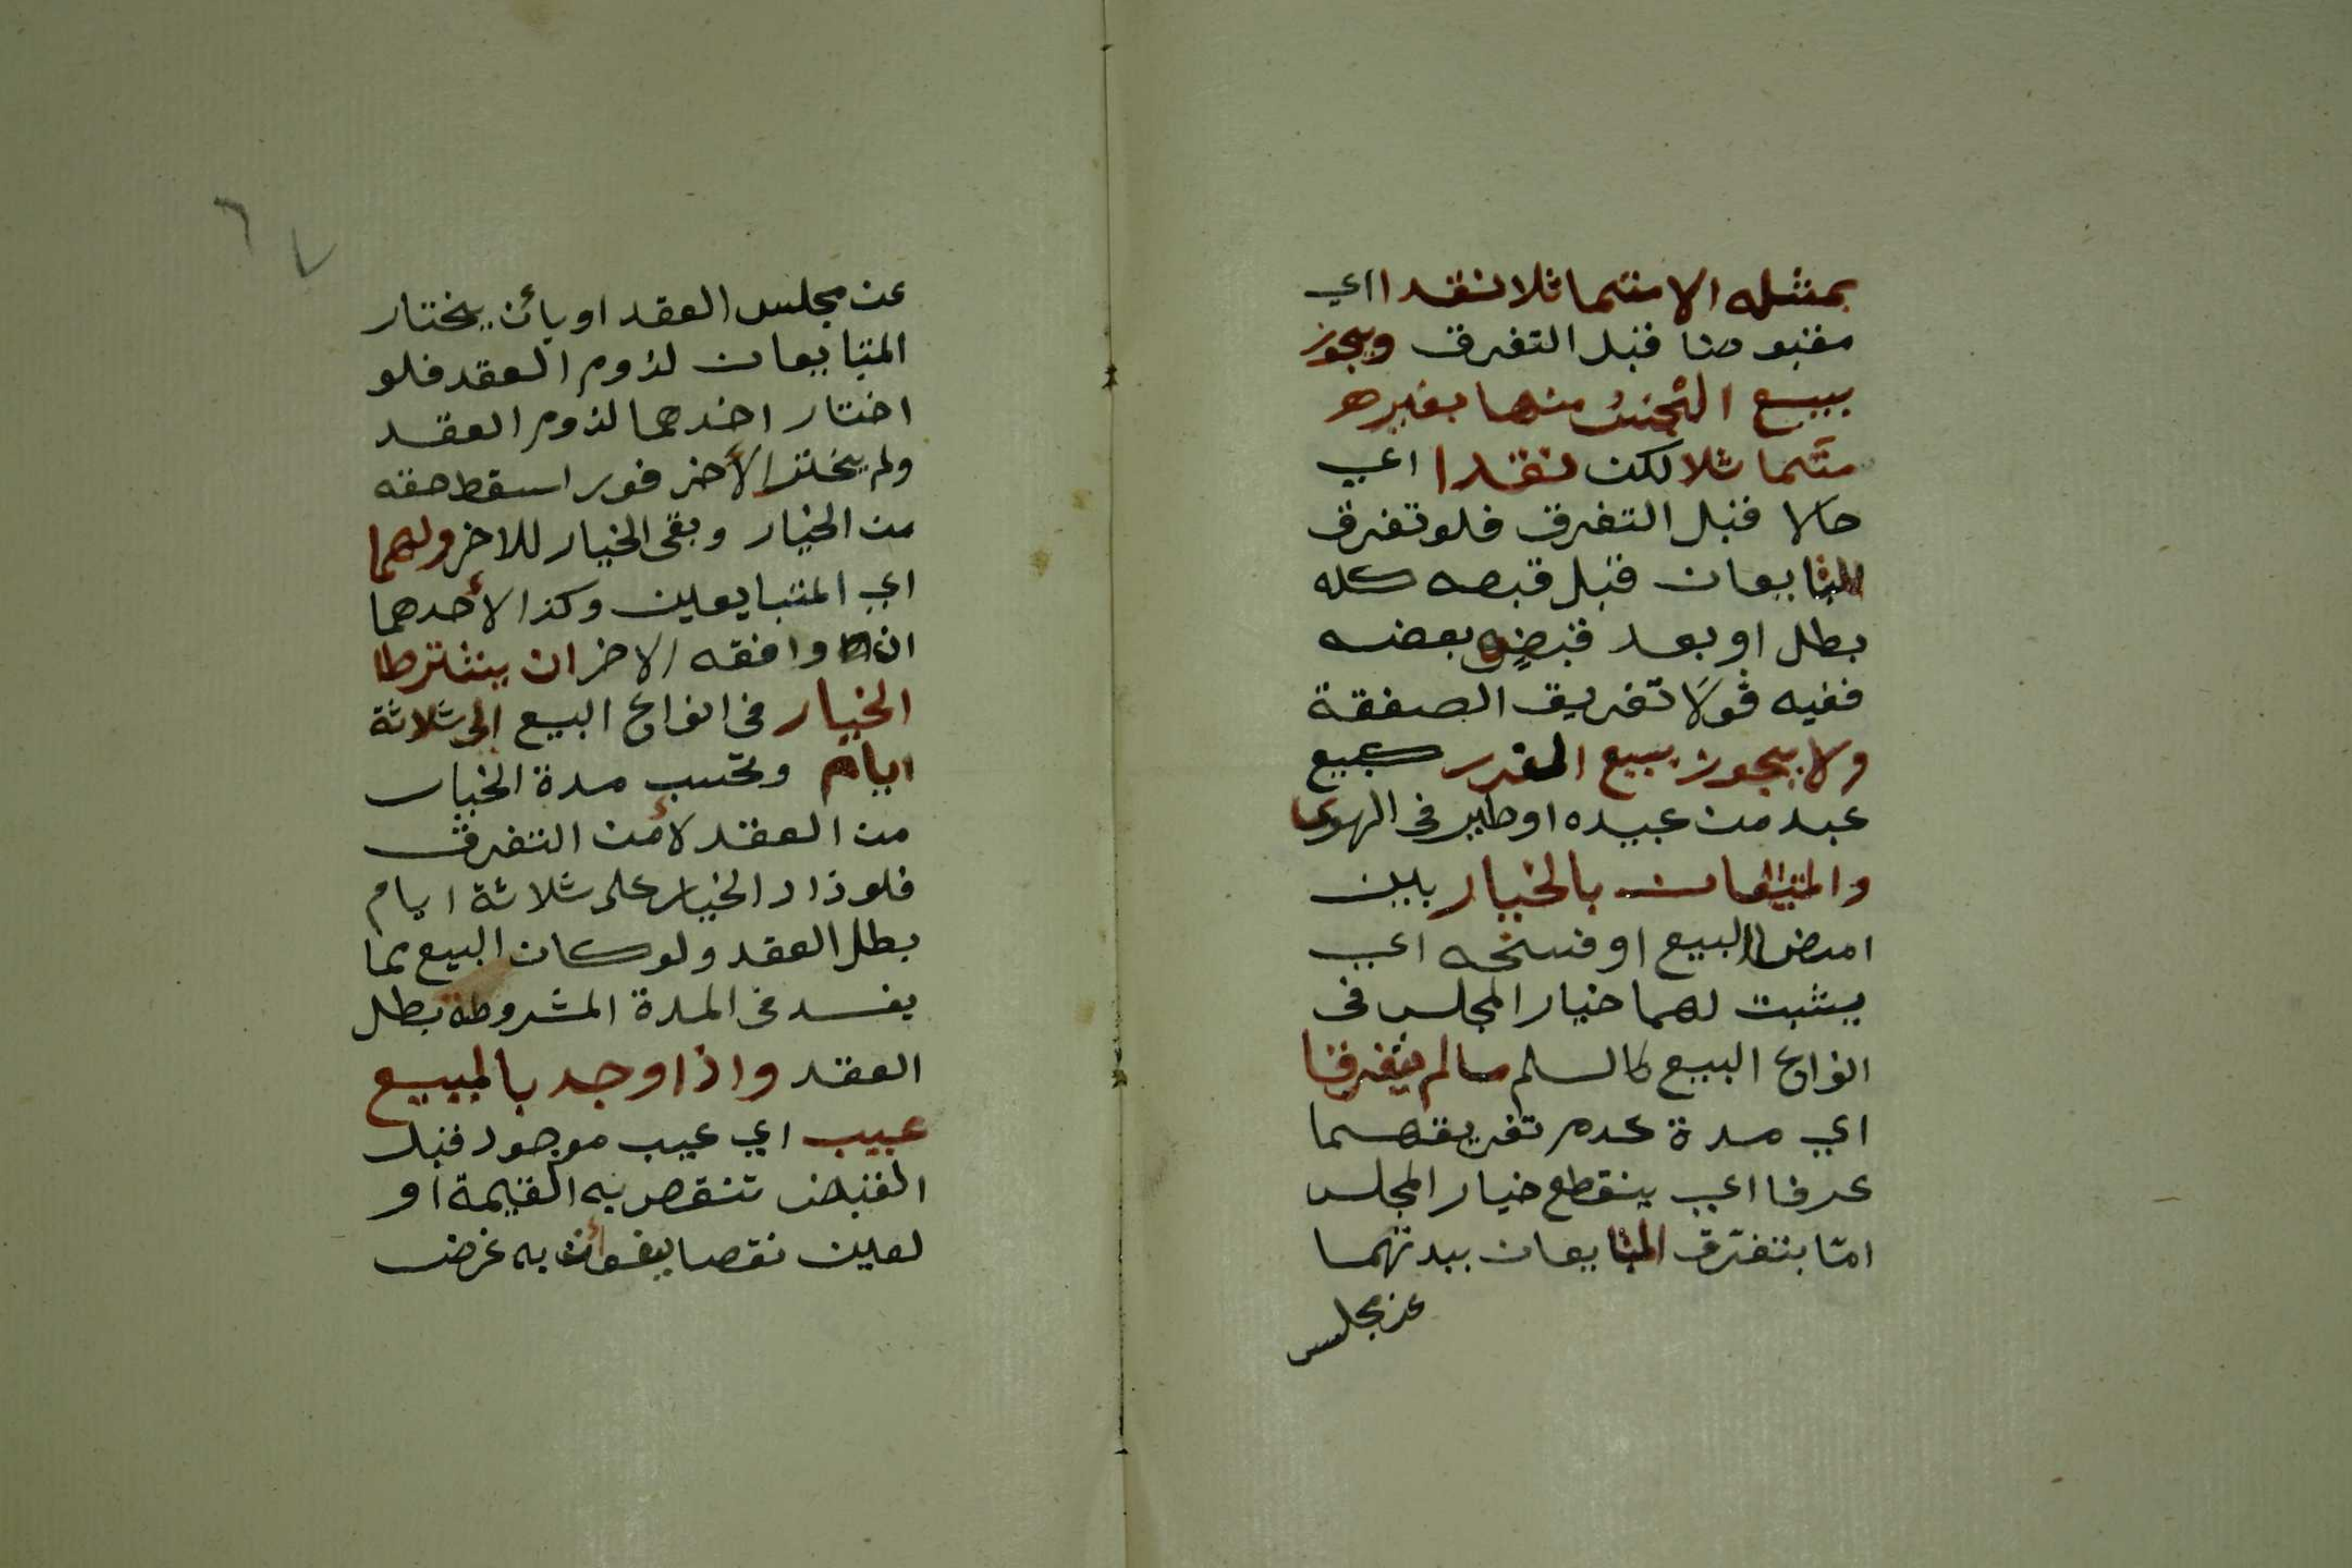 بمثله الا متماثلا نقدا اي
مقبوضا قبل التفرق ويجوز
بيع الجنس منها بغيره
متماثلا لكن نقدا اي
حالا قبل التفرق فلو تفرق
المتبايعان قبل قبضه كله
بطل او بعد قبض بعضه
ففيه قولا تفريق الصفقة
ولا يجوز بيع الغرر كبيع
عبد من عبيده او طير في الهوى
والمتبايعان بالخيار بين
امضا البيع او فسخه اي
يثبت لهما خيار المجلس في
انواع البيع كالسلم ما لم يتفرقا
اي مدة عدم تفريقهما
عرفا اي ينقطع خيار المجلس
امّا بتفرّق المتبايعان ببدنهما
عن مجلس
٦٧
عن مجلس العقد او بأن يختار
المتبايعان لزوم العقد فلو
اختار احدهما لزوم العقد
ولم يختر الأخر فورا سقط حقه
من الخيار وبقى الخيار للاخر ولهما
اي المتبايعين وكذا لأحدهما
ان وافقه الاخر ان يشترطا
الخيار في انواع البيع الى ثلاثة
ايام وتحسب مدة الخيار
من العقد لا من التفرق
فلو زاد الخيار على ثلاثة ايام
بطل العقد ولو كان البيع مما
يفسد في المدة المشروطة بطل
العقد واذا وجد بالمبيع
عيب اي عيب موجود قبل
القبض تنقص به القيمة او
لعين نقصا يفوت به غرض